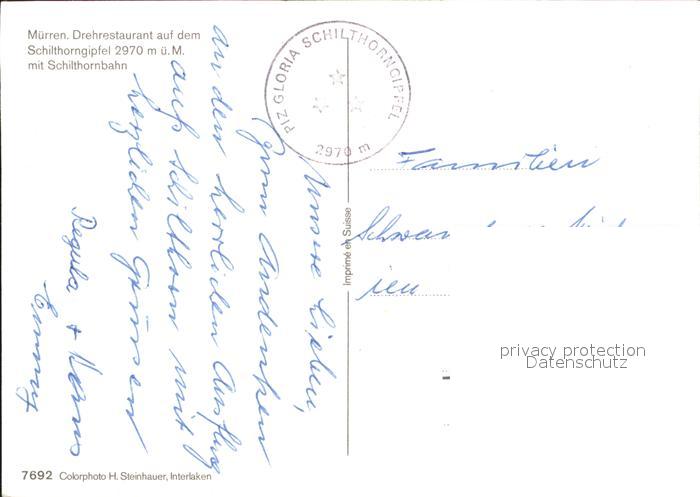 Mürren. Drehrestaurant auf dem
Schilthorngipfel 2970 m ü.M.
mit Schilthornbahn
PIZ GLORIA SCHILTHORNGIPFEL
2970 m
Unsere Lieben,
Zum Andenken
an den herrlichen Ausflug
aufs Schilthorn mit
herzlichen Grüssen
Regula +
Emmy
Familien
Imprimé en Suisse
privacy protection
Datenschutz
7692 Colorphoto H. Steinhauer, Interlaken